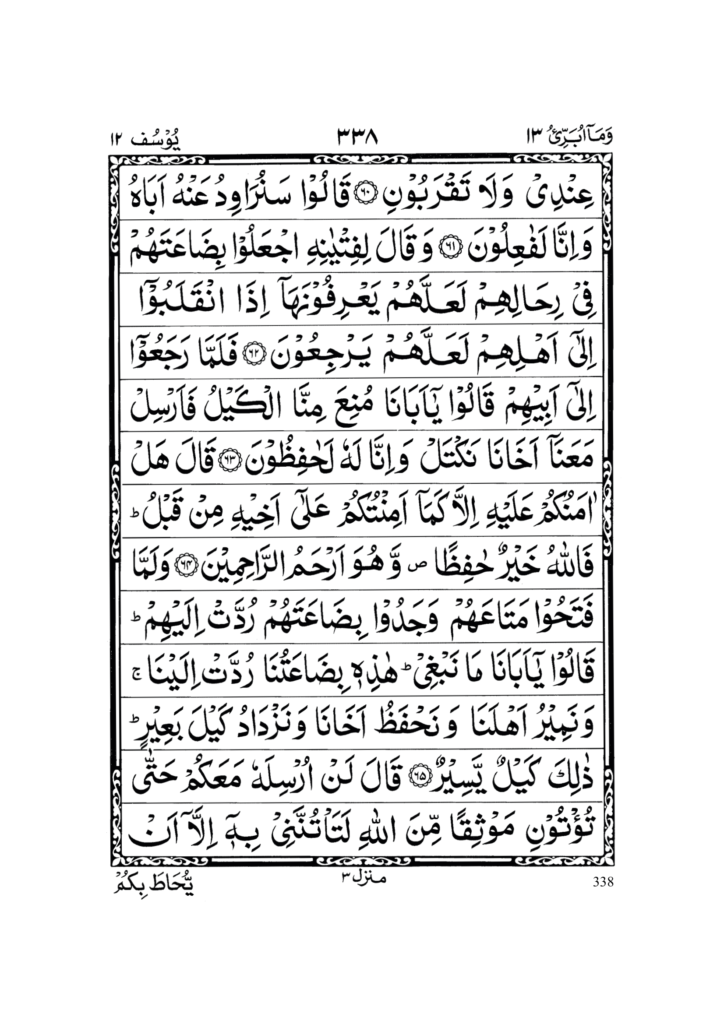 وَمَاۤ اُبَرِّئُ ۱۳ ۳۳۸ يُوْسُف ۱۲
عِنْدِیْ وَلَا تَقْرَبُوْنِ ﴿۶۰﴾ قَالُوْا سَنُرَاوِدُ عَنْهُ اَبَاهُ
وَاِنَّا لَفٰعِلُوْنَ ﴿۶۱﴾ وَقَالَ لِفِتْيٰنِهِ اجْعَلُوْا بِضَاعَتَهُمْ
فِیْ رِحَالِهِمْ لَعَلَّهُمْ يَعْرِفُوْنَهَاۤ اِذَا انْقَلَبُوْۤا
اِلٰۤی اَهْلِهِمْ لَعَلَّهُمْ يَرْجِعُوْنَ ﴿۶۲﴾ فَلَمَّا رَجَعُوْۤا
اِلٰۤی اَبِيْهِمْ قَالُوْا يٰۤاَبَانَا مُنِعَ مِنَّا الْكَيْلُ فَاَرْسِلْ
مَعَنَاۤ اَخَانَا نَكْتَلْ وَاِنَّا لَهٗ لَحٰفِظُوْنَ ﴿۶۳﴾ قَالَ هَلْ
اٰمَنُكُمْ عَلَيْهِ اِلَّا كَمَاۤ اَمِنْتُكُمْ عَلٰۤی اَخِيْهِ مِنْ قَبْلُ ؕ
فَاللّٰهُ خَيْرٌ حٰفِظًا ص وَّهُوَ اَرْحَمُ الرَّاحِمِيْنَ ﴿۶۴﴾ وَلَمَّا
فَتَحُوْا مَتَاعَهُمْ وَجَدُوْا بِضَاعَتَهُمْ رُدَّتْ اِلَيْهِمْ ؕ
قَالُوْا يٰۤاَبَانَا مَا نَبْغِیْ ؕ هٰذِهٖ بِضَاعَتُنَا رُدَّتْ اِلَيْنَا ۚ
وَنَمِيْرُ اَهْلَنَا وَنَحْفَظُ اَخَانَا وَنَزْدَادُ كَيْلَ بَعِيْرٍ ؕ
ذٰلِكَ كَيْلٌ يَّسِيْرٌ ﴿۶۵﴾ قَالَ لَنْ اُرْسِلَهٗ مَعَكُمْ حَتّٰی
تُؤْتُوْنِ مَوْثِقًا مِّنَ اللّٰهِ لَتَاْتُنَّنِیْ بِهٖۤ اِلَّاۤ اَنْ
يُّحَاطَ بِكُمْ
منزل ۳
338